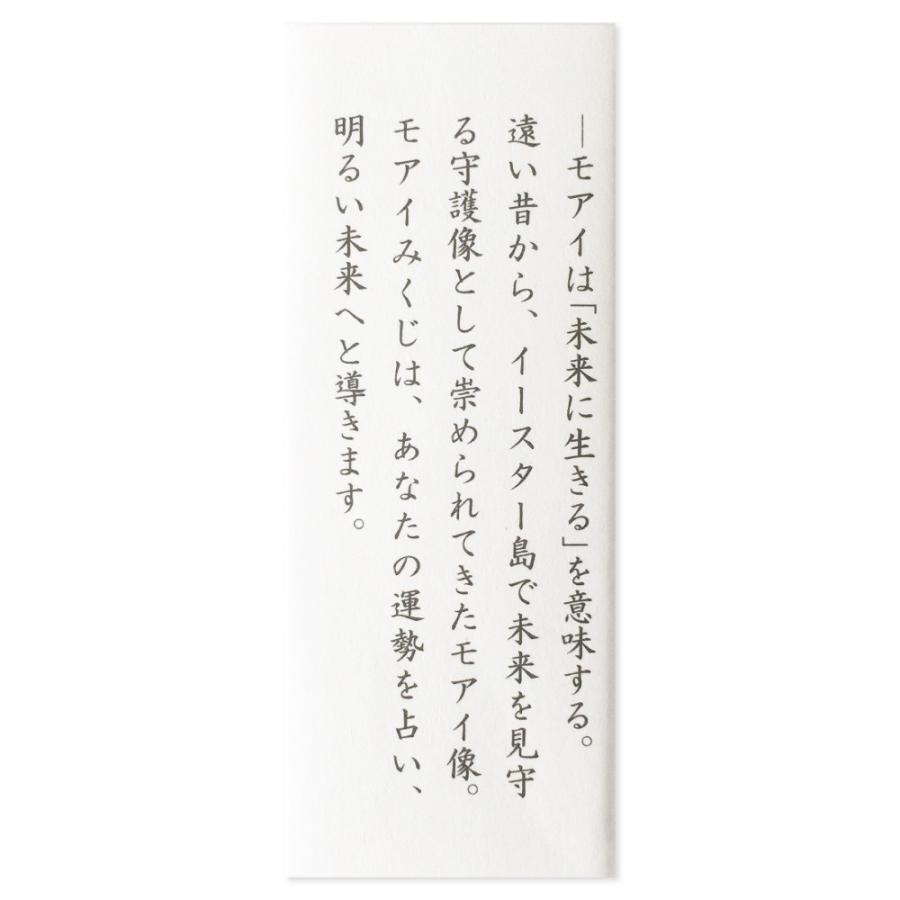 ―モアイは「未来に生きる」を意味する。
遠い昔から、イースター島で未来を見守
る守護像として崇められてきたモアイ像。
モアイみくじは、あなたの運勢を占い、
明るい未来へと導きます。